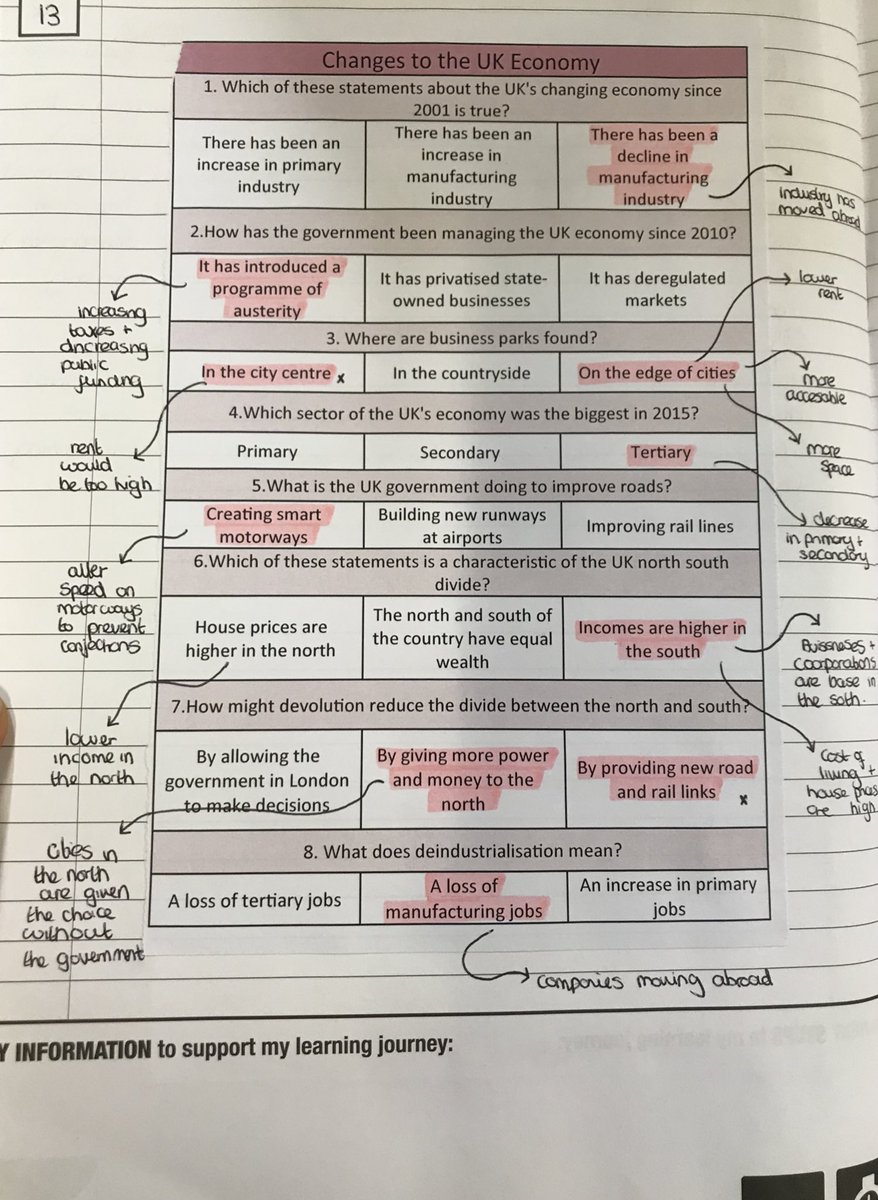 13
Changes to the UK Economy
1. Which of these statements about the UK's changing economy since
2001 is true?
There has been an
increase in primary
industry
There has been an
increase in
manufacturing
industry
There has been a
decline in
manufacturing
industry
industry has
moved abroad
2.How has the government been managing the UK economy since 2010?
It has introduced a
programme of
austerity
It has privatised state-
owned businesses
It has deregulated
markets
increasing
taxes +
dncreasing
public
funding
lower
rent
3. Where are business parks found?
In the city centre x
In the countryside
On the edge of cities
more
accesable
more
space
rent
would
be too high
4.Which sector of the UK's economy was the biggest in 2015?
Primary
Secondary
Tertiary
decrease
in primary +
secondary
5.What is the UK government doing to improve roads?
Creating smart
motorways
Building new runways
at airports
Improving rail lines
alter
speed on
motorways
to prevent
conjections
6.Which of these statements is a characteristic of the UK north south
divide?
House prices are
higher in the north
The north and south of
the country have equal
wealth
Incomes are higher in
the south
Buissneses +
coorporations
are base in
the soth.
cost of
living +
house
are high
lower
income in
the north
7.How might devolution reduce the divide between the north and south?
By allowing the
government in London
to make decisions
By giving more power
and money to the
north
By providing new road
and rail links x
cities in
the north
are given
the choice
without
the government
8. What does deindustrialisation mean?
A loss of tertiary jobs
A loss of
manufacturing jobs
An increase in primary
jobs
companies moving abroad
Y INFORMATION to support my learning journey: